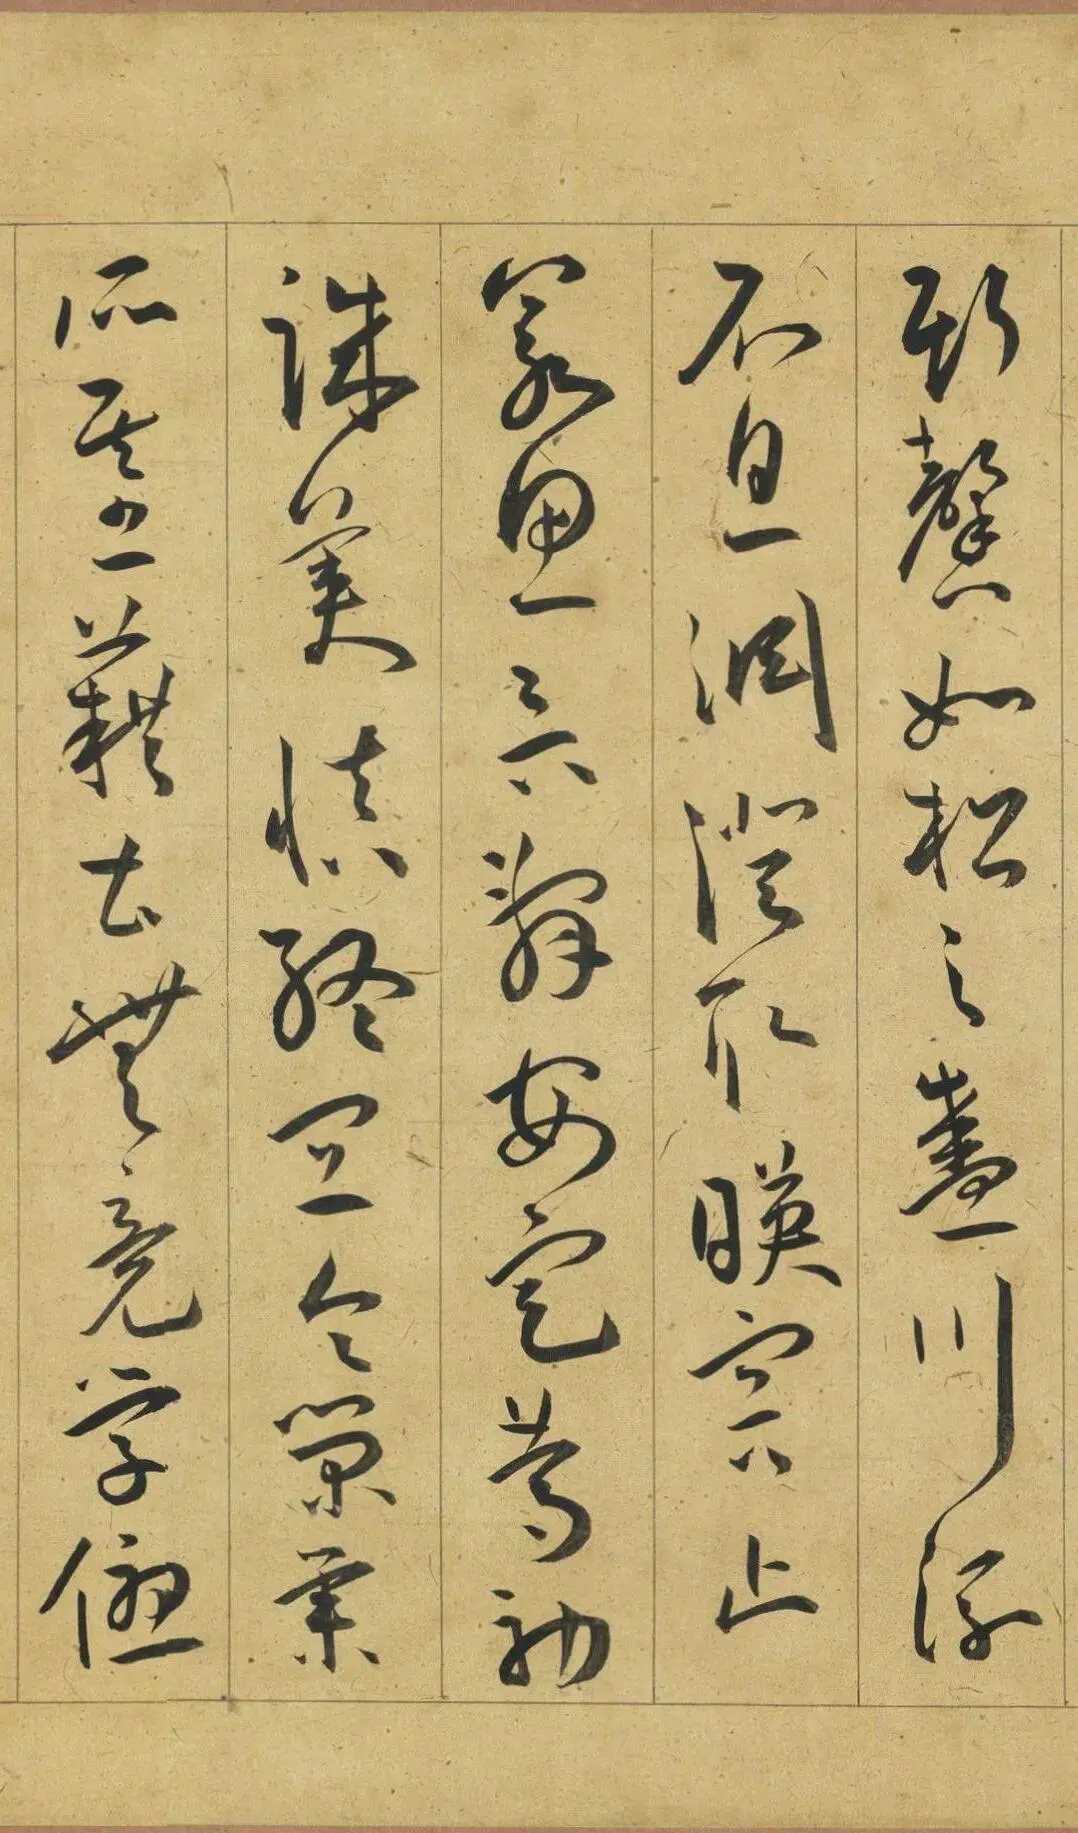 斯馨如松之盛川流
不息淵澄取暎容止
若思言辭安定篤初
誠美慎終宜令榮業
所基藉甚無竟學優